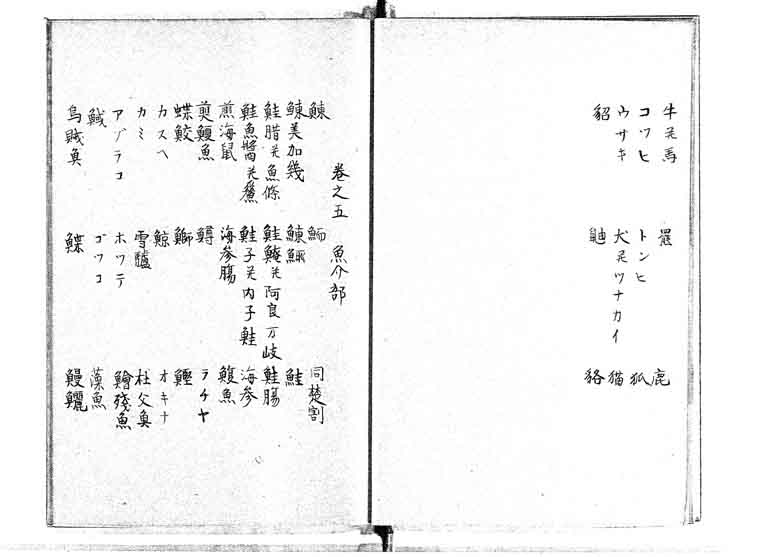 牛 馬 羆 鹿
コツヒ トンヒ 狐
ウサキ 犬 ツナカイ 猫
貂 鼬 貉
巻之五 魚介部
鰊 鰤 同楚割
鰊美加幾 鰊鯑 鮭
鮭腊 魚條 鮭 阿良万岐 鮭腸
鮭魚醤 鮭子 内子鮭 海参
煎海鼠 海参腸 鰒魚
煎鰒魚 鱘 ラチヤ
蝶鮫 鰤 鰹
カスヘ 鯨 オキナ
カミ 雪鱸 杜父魚
アブラコ ホツテ 鱠残魚
ゴツコ 藻魚
烏賊魚 鰈 鰻鱺